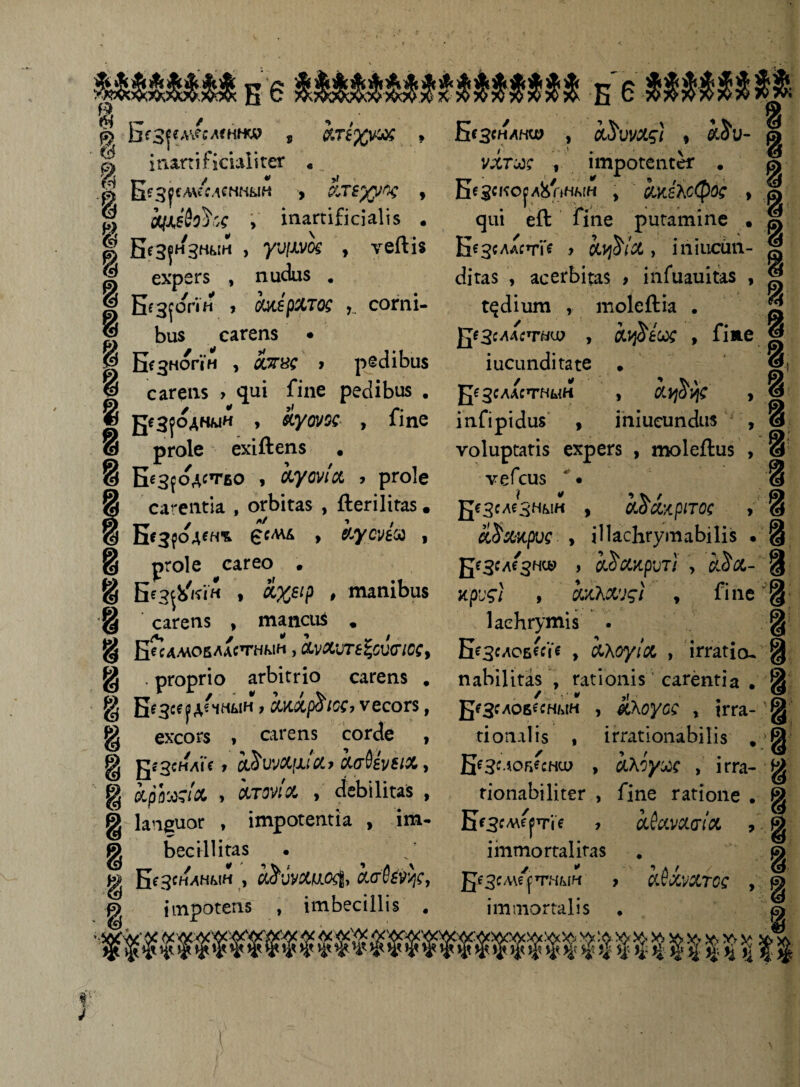 Б е Б е
Безремесленнѡ , ἀτέχνως ,
inartificialiter .
Безремесленный , ἄτεχνος ,
ἀμέθοδος , inartificialis .
Безризный , γυμνός , veſtis
expers , nudus .
Безрогїй , ἀκέρατος , corni-
bus carens .
Безногїй , ἄπους , pedibus
carens , qui ſine pedibus .
Безродный , ἄγονος , ſine
prole exiſtens .
Безродство , ἀγονία , prole
carentia , orbitas , ſterilitas .
Безроденъ есмь , ἀγονέω ,
prole careo .
Безрꙋкїй , ἄχειρ , manibus
carens , mancus .
Безсамовластный , ἀναυτεξούσιος,
proprio arbitrio carens .
Безсердечный , ἀκάρδιος, vecors,
excors , carens corde ,
Безсилїе , ἀδυναμία, ἀσθένεια,
ἀῤῥωςία , ἀτονία , debilitas ,
languor , impotentia , im-
becillitas .
Безсильный , ἀδύναμος, ἀσθενής,
impotens , imbecillis .
Безсильнѡ , ἀδυναςὶ , ἀδυ-
νάτως , impotenter .
Безскорлꙋпный , ἀκέλυφος ,
qui eſt ſine putamine .
Безсластїе , ἀηδία , iniucun-
ditas , acerbitas , inſuauitas ,
tędium , moleſtia .
Безсластнѡ , ἀηδέως , ſine
iucunditate .
Безсластный , ἀηδὴς ,
inſipidus , iniucundus ,
voluptatis expers , moleſtus ,
veſcus .
Безслезный , ἀδάκριτος ,
ἄδακρυς , illachrymabilis .
Безслезнѡ , ἀδακρυτὶ , ἀδα-
κρυςὶ , ἀκλαυςὶ , ſine
lachrymis .
Безсловесїе , ἀλογία , irratio-
nabilitas , rationis carentia .
Безсловесный , ἄλογος , irra-
tionalis , irrationabilis .
Безсловеснѡ , ἀλόγως , irra-
tionabiliter , ſine ratione .
Безсмертїе , ἀθανασία ,
immortalitas .
Безсмертный , ἀθάνατος ,
immortalis .